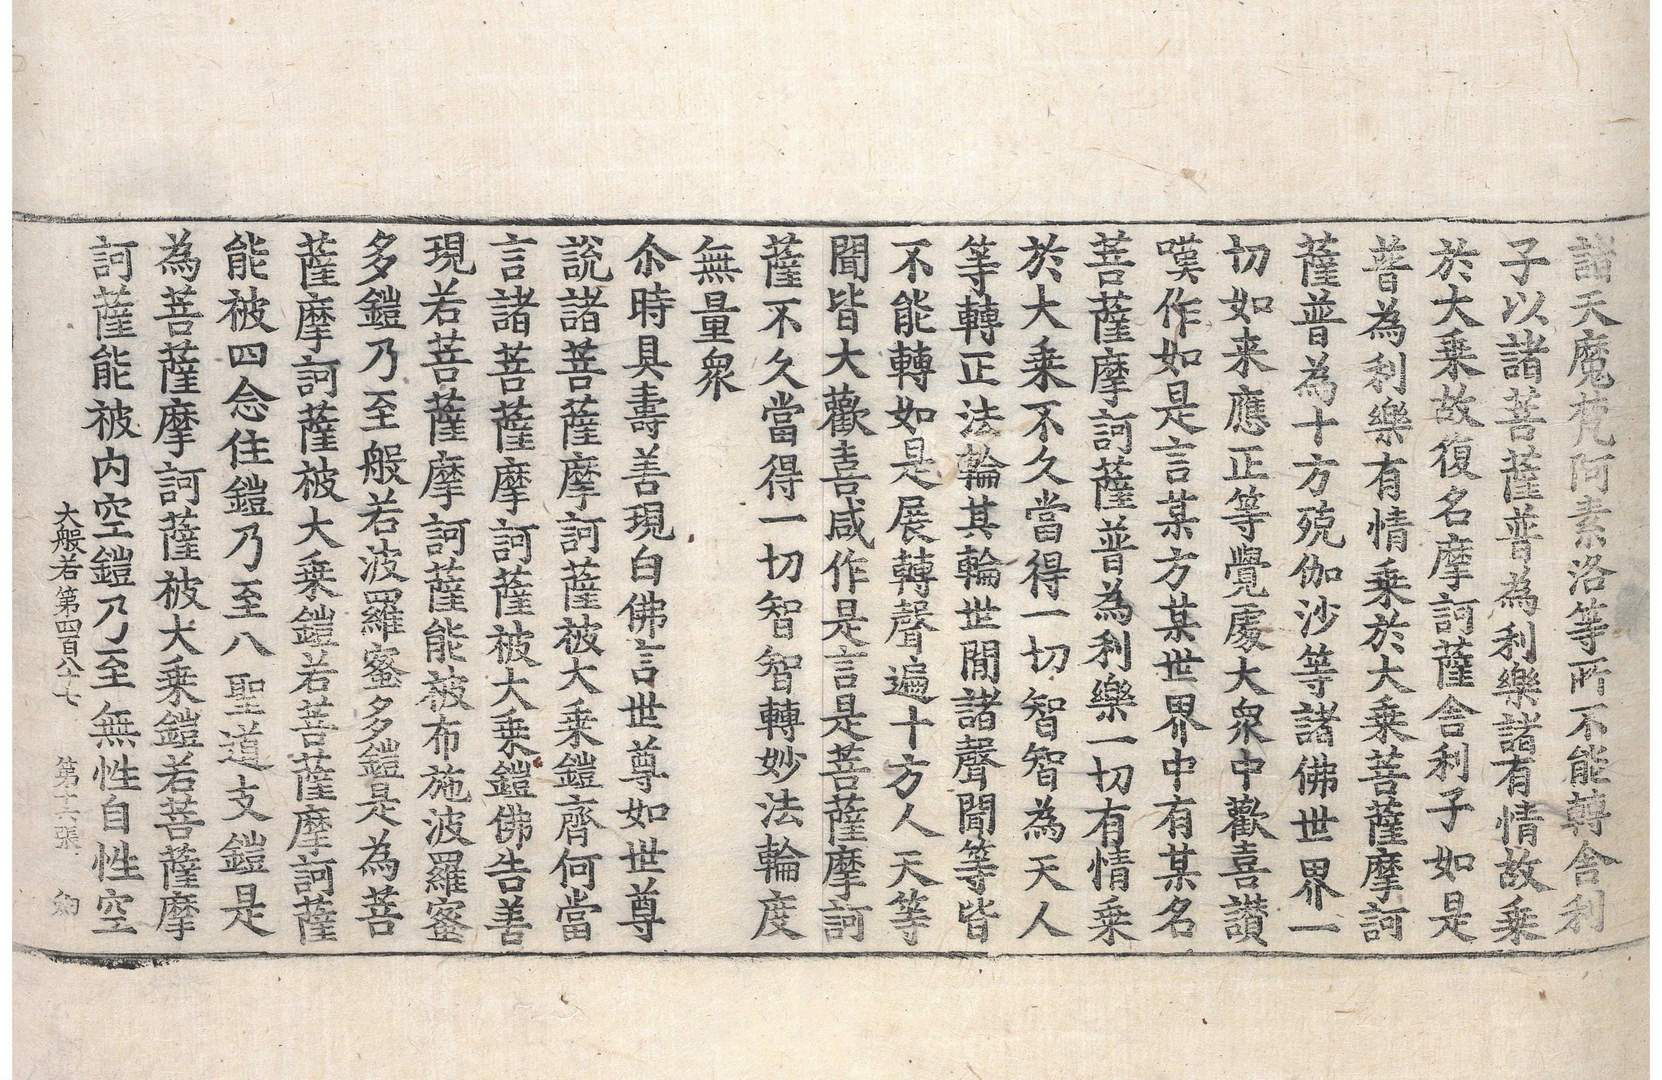 諸天魔梵阿素洛等所不能轉舍利
子以諸菩薩普為利樂諸有情故乗
於大乗故復名摩訶薩舍利子如是
普為利樂有情乗於大乗菩薩摩訶
薩普為十方殑伽沙等諸佛世界一
切如来應正等覺處大衆中歡喜讃
嘆作如是言某方某世界中有某名
菩薩摩訶薩普為利樂一切有情乗
於大乗不久當得一切智智為天人
等轉正法輪其輪世閒諸聲聞等皆
不能轉如是展轉聲遍十方人天等
聞皆大歡喜咸作是言是菩薩摩訶
薩不久當得一切智智轉妙法輪度
無量衆
尒時具壽善現白佛言世尊如世尊
說諸菩薩摩訶薩被大乗鎧齊何當
言諸菩薩摩訶薩被大乗鎧佛告善
現若菩薩摩訶薩能被布施波羅蜜
多鎧乃至般若波羅蜜多鎧是為菩
薩摩訶薩被大乗鎧若菩薩摩訶薩
能被四念住鎧乃至八聖道支鎧是
為菩薩摩訶薩被大乗鎧若菩薩摩
訶薩能被内空鎧乃至無性自性空
大般若第四百八十七 第十六張